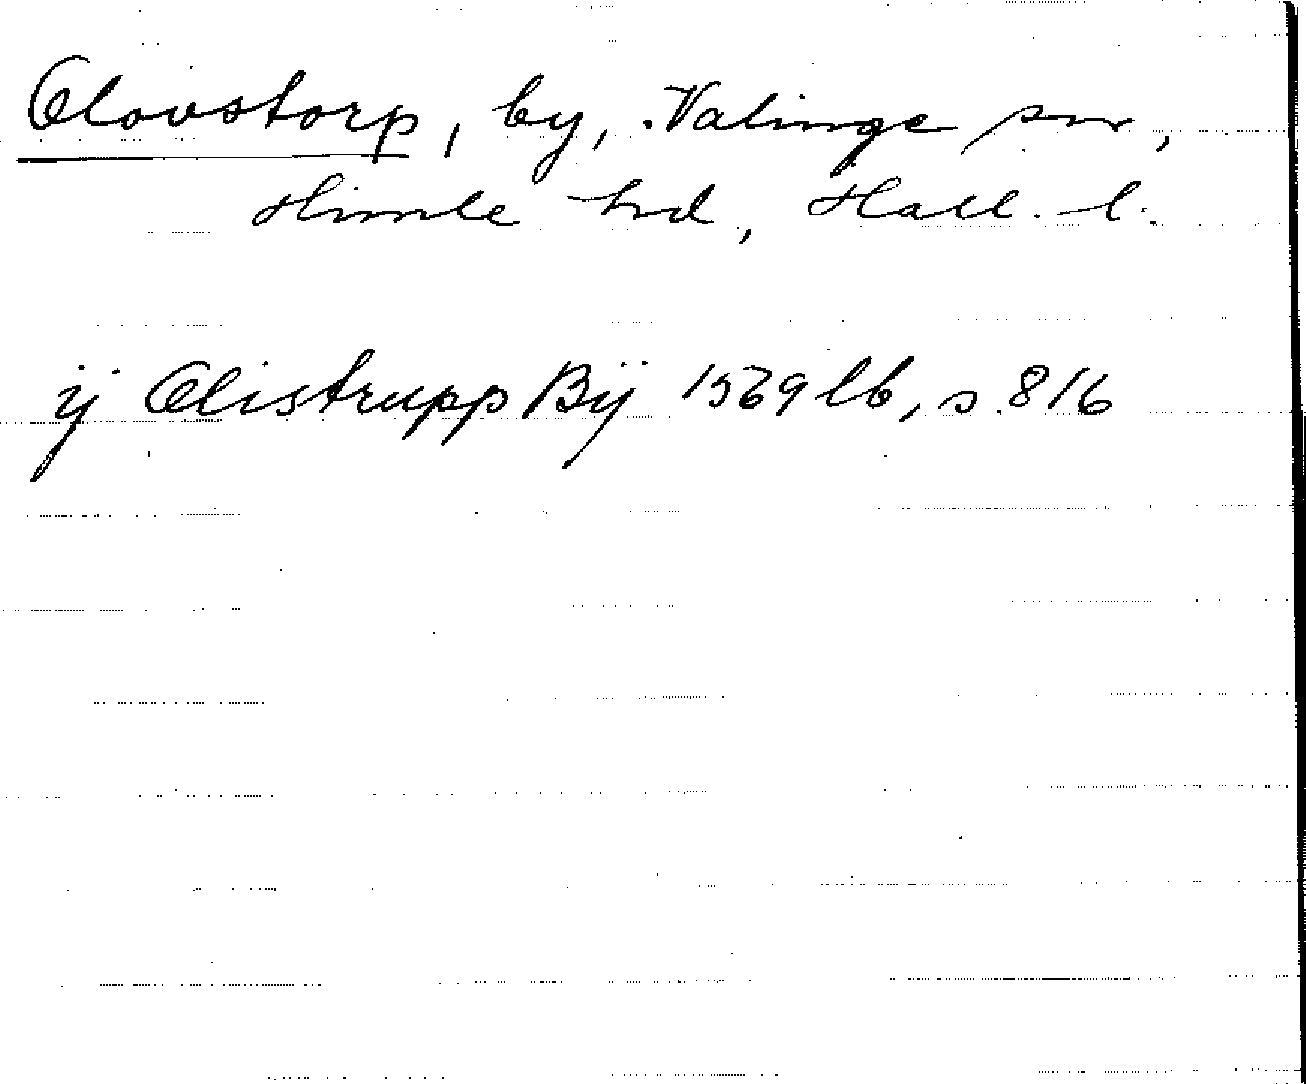 Olovstorp, by, Valinge sn,
Himle hd, Hall. l.
ij Olistrupp Bij 1569 lb, s. 816